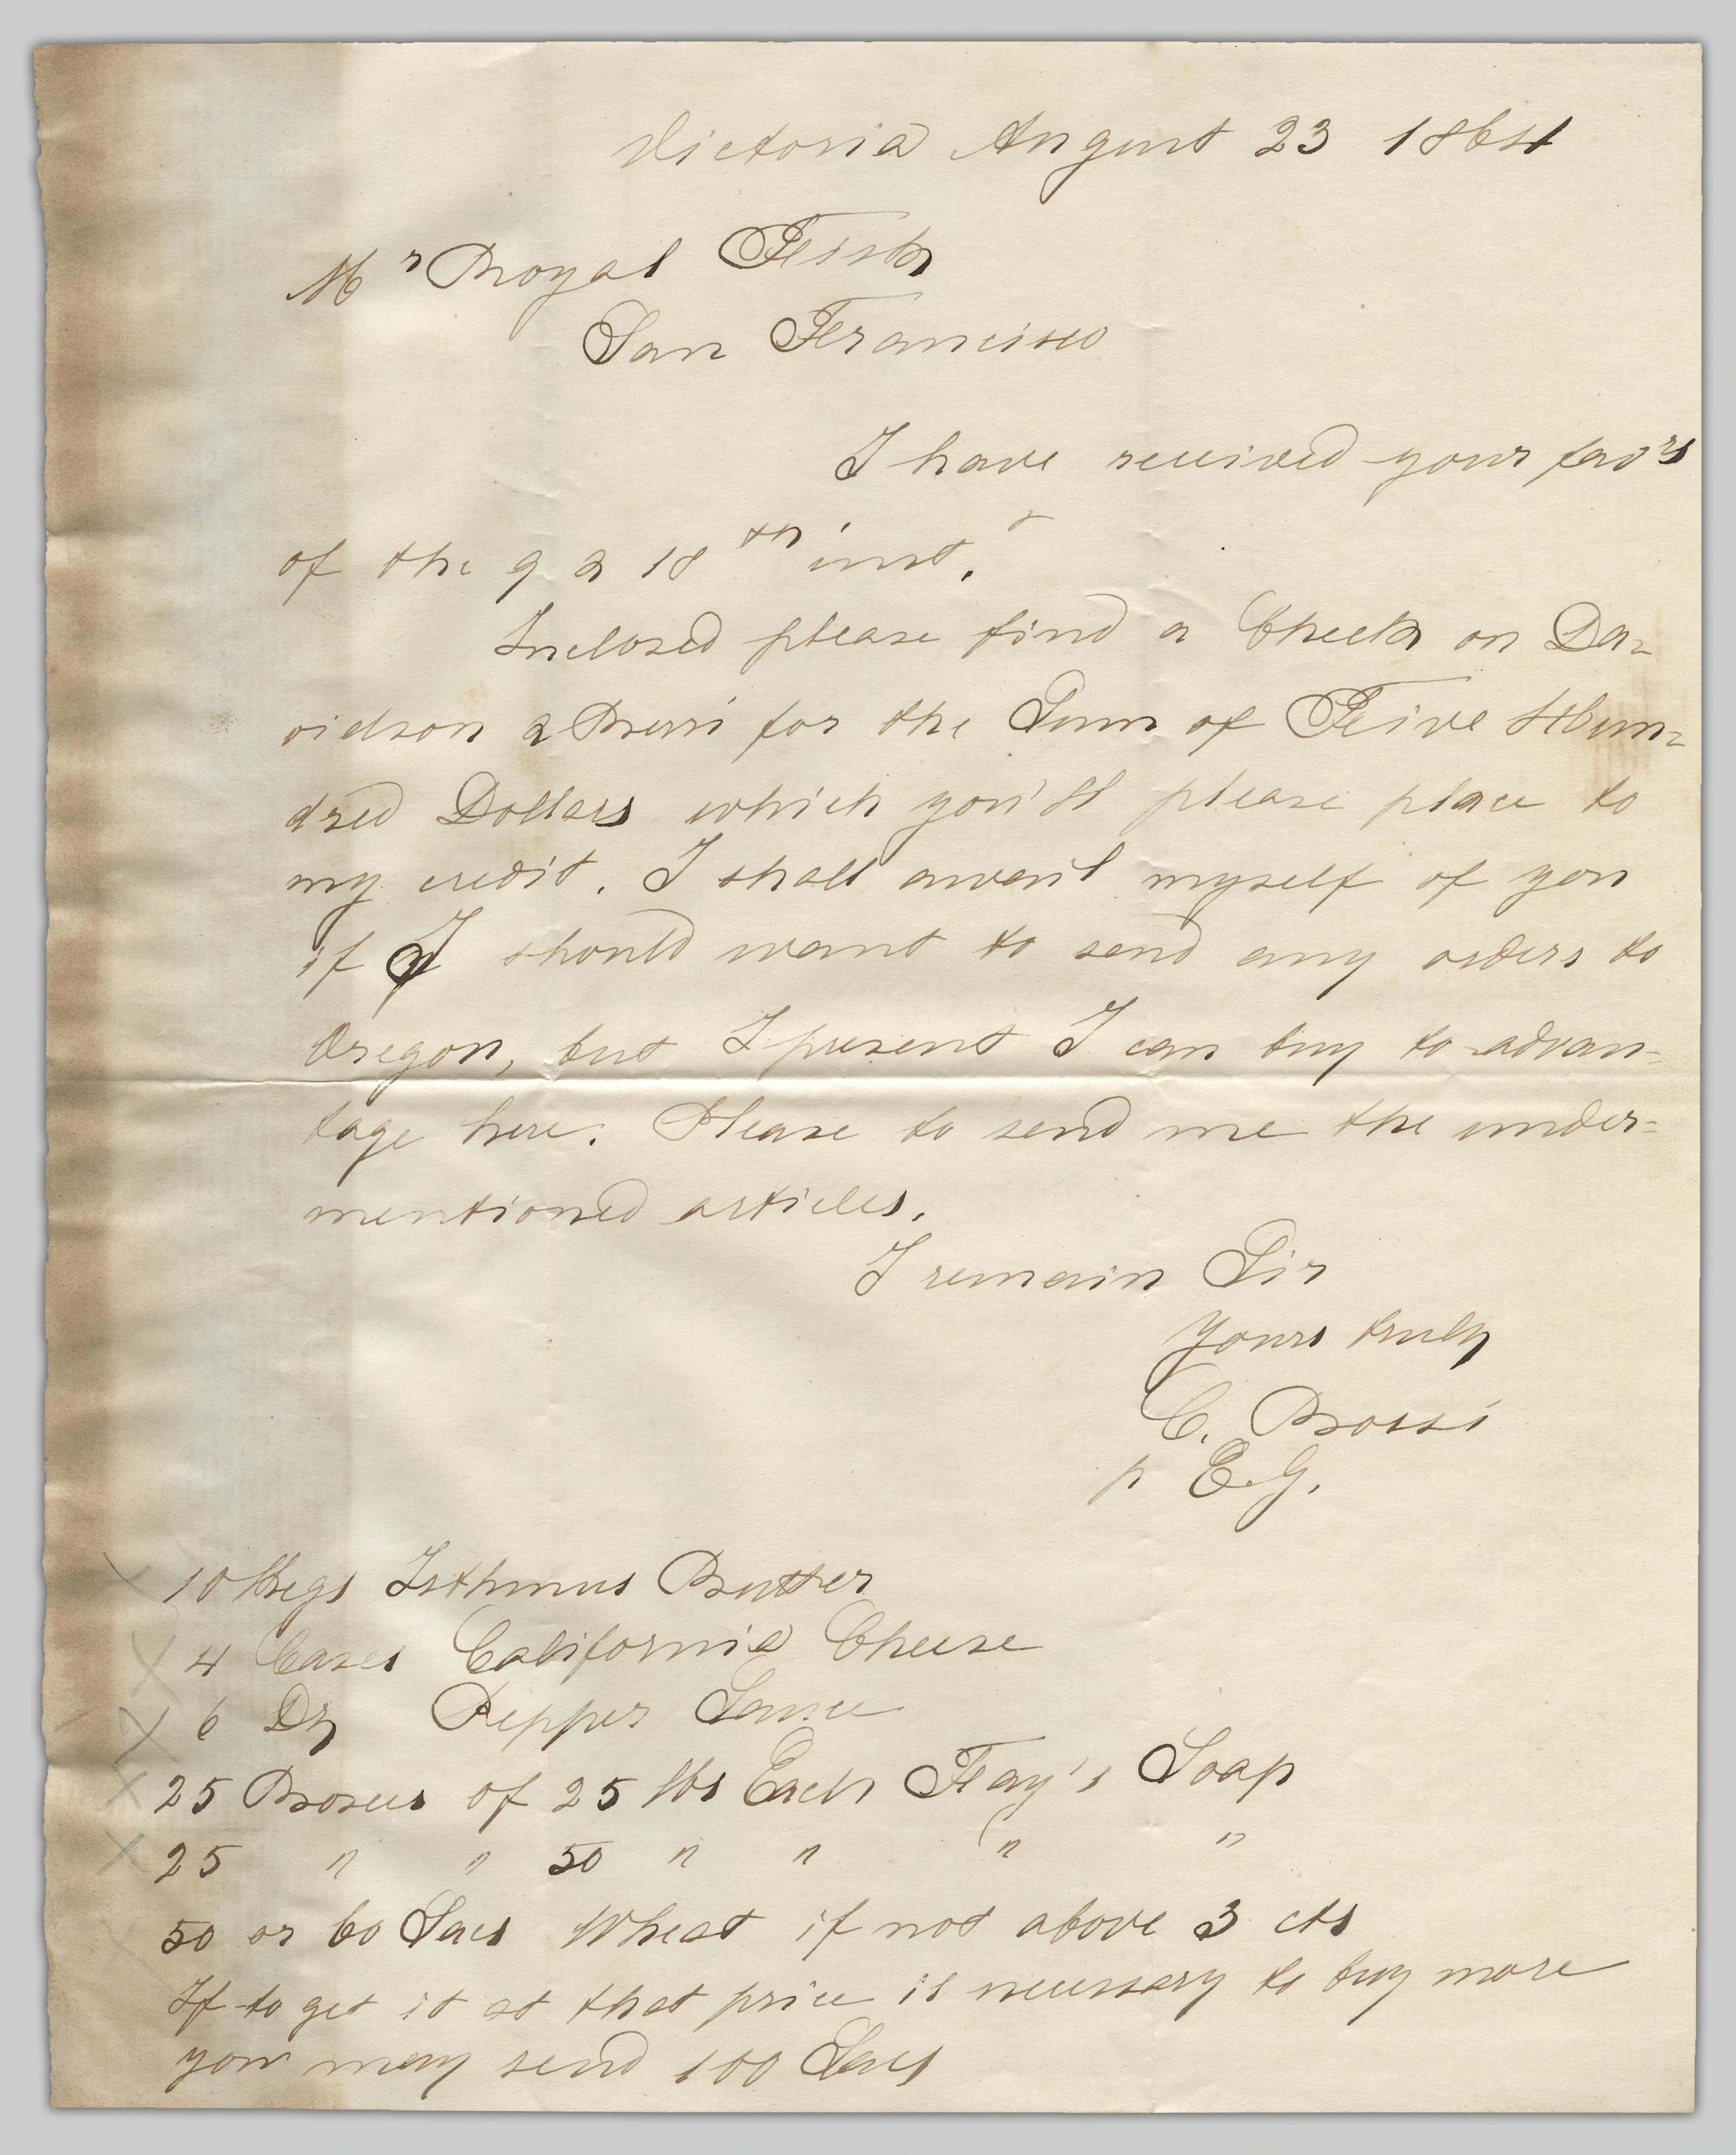 Victoria August 23 1864
Mr Royal Fisk
San Francisco
I have received your favrs
of the 9 & 18th inst.
Inclosed please find a Check on Da-
vidson & Berri for the Sum of Five Hun-
dred Dollars which you'll please place to
my credit. I shall avail myself of you
if I should want to send any orders to
Oregon, but I present I can buy to advan-
tage here. Please to send me the under-
mentioned articles.
I remain Sir
Yours truly
C. Bossi
p E.G.
10 Kegs Isthmus Butter
4 Cases California Cheese
6 Dz Pepper Sauce
25 Boxes of 25 lbs Each Fay's Soap
25 " " 50 " " " "
50 or 60 Sacs Wheat if not above 3 cts
If to get it at that price is necessary to buy more
you may send 100 Sacs